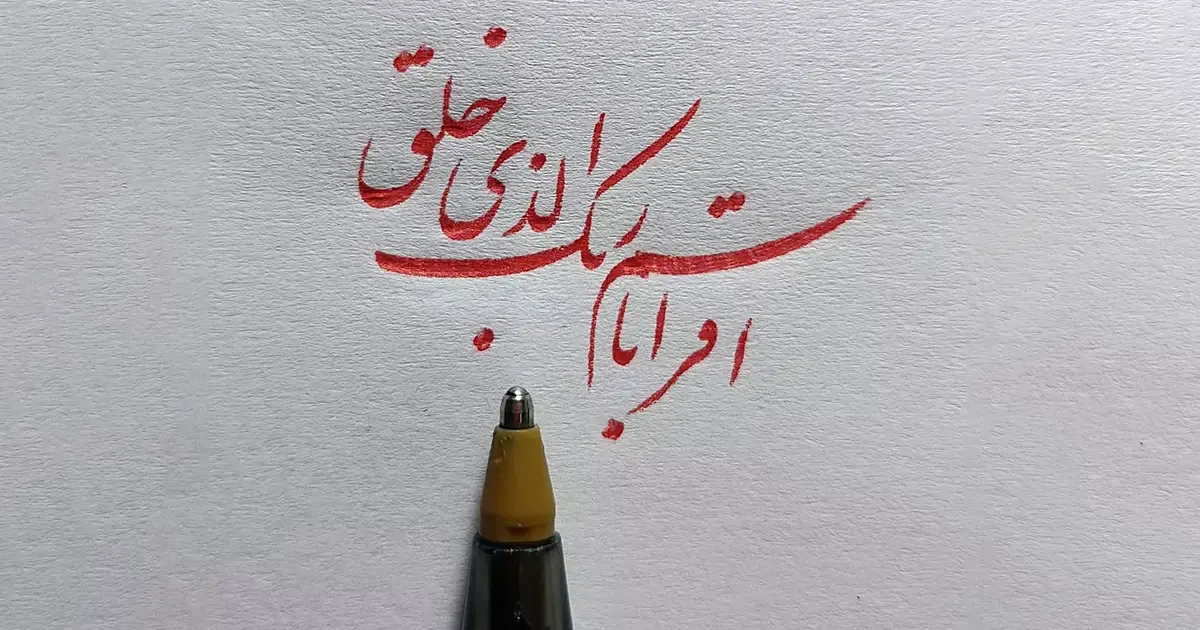 اقرا باسم ربک الذی خلق